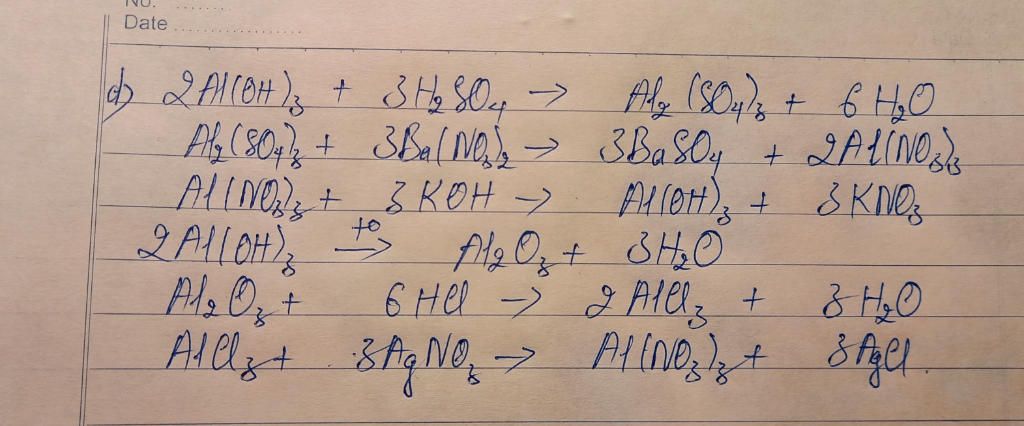 No. ........
Date ..................
d) 2Al(OH)₃ + 3H₂SO₄ → Al₂(SO₄)₃ + 6H₂O
Al₂(SO₄)₃ + 3Ba(NO₃)₂ → 3BaSO₄ + 2Al(NO₃)₃
Al(NO₃)₃ + 3KOH → Al(OH)₃ + 3KNO₃
2Al(OH)₃ —t⁰→ Al₂O₃ + 3H₂O
Al₂O₃ + 6HCl → 2AlCl₃ + 3H₂O
AlCl₃ + 3AgNO₃ → Al(NO₃)₃ + 3AgCl.